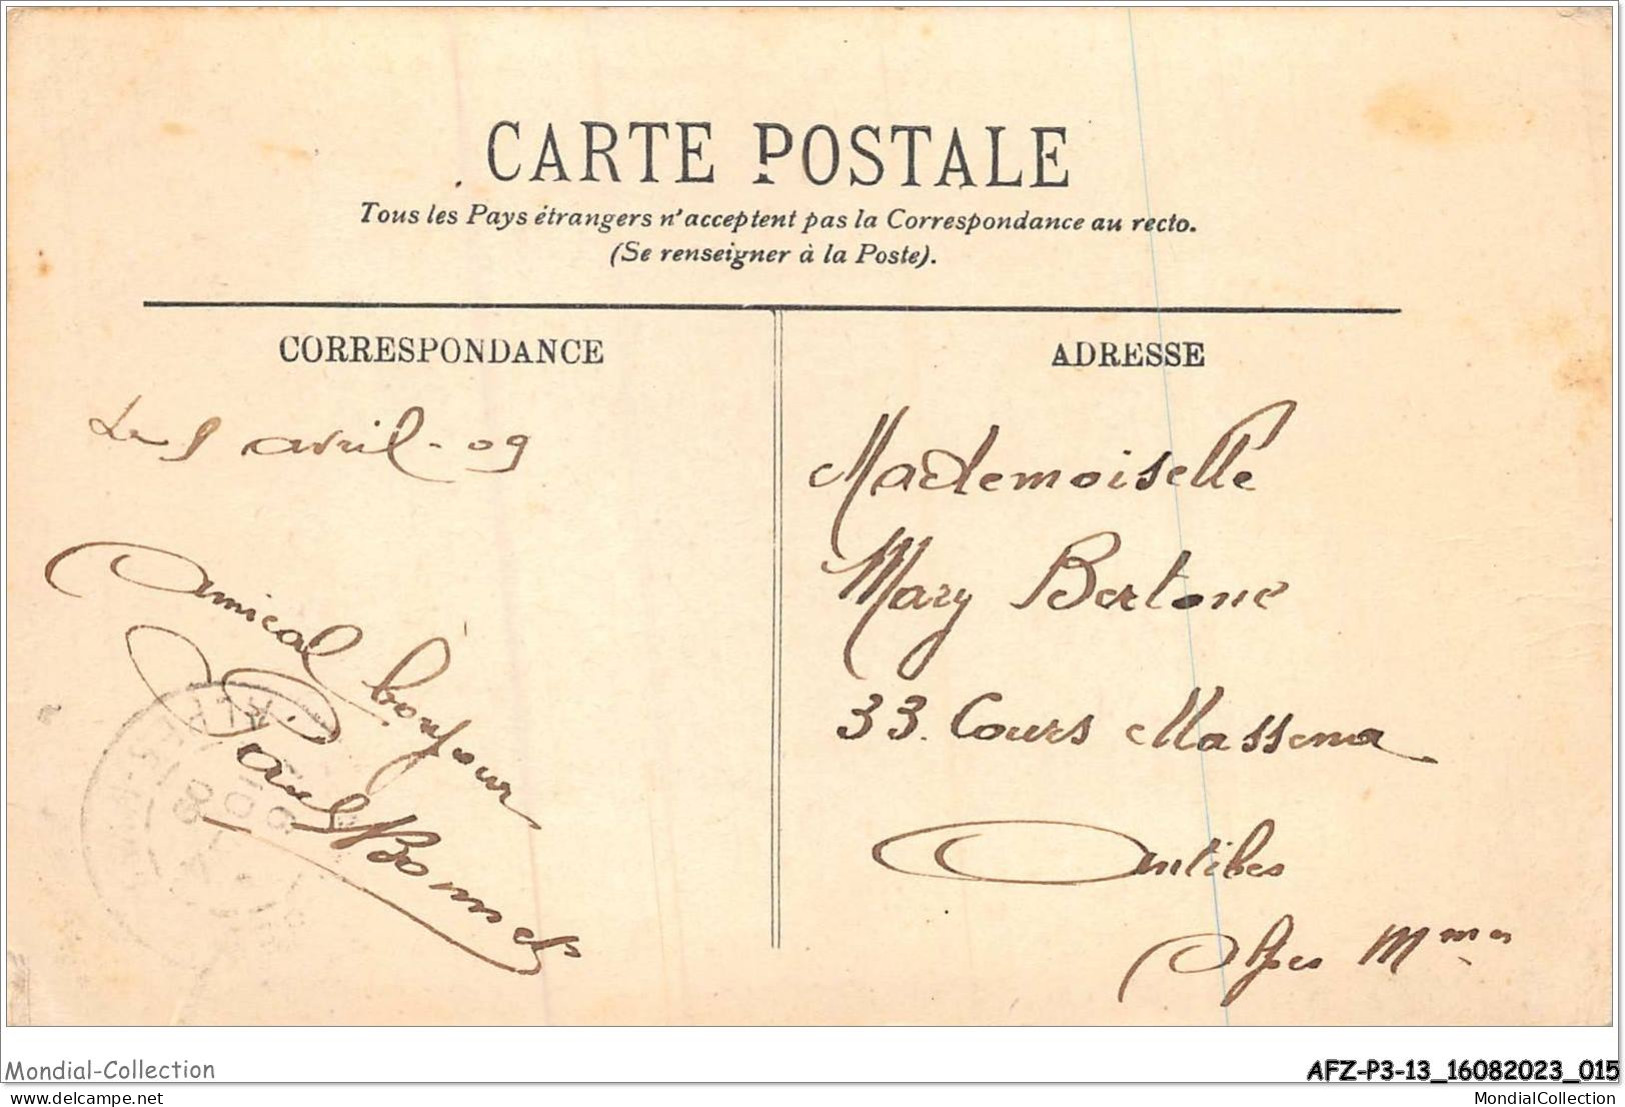 CARTE POSTALE
Tous les Pays étrangers n'acceptent pas la Correspondance au recto.
(Se renseigner à la Poste).
CORRESPONDANCE
Le 5 avril - 09
Amical bonjour
Paul Bonnet
ADRESSE
Mademoiselle
Mary Bertone
33. Cours Massena
Antibes
Alpes Mmes
ALPES-M
Mondial-Collection
AFZ-P3-13_16082023_015
delcampe.net
MondialCollection